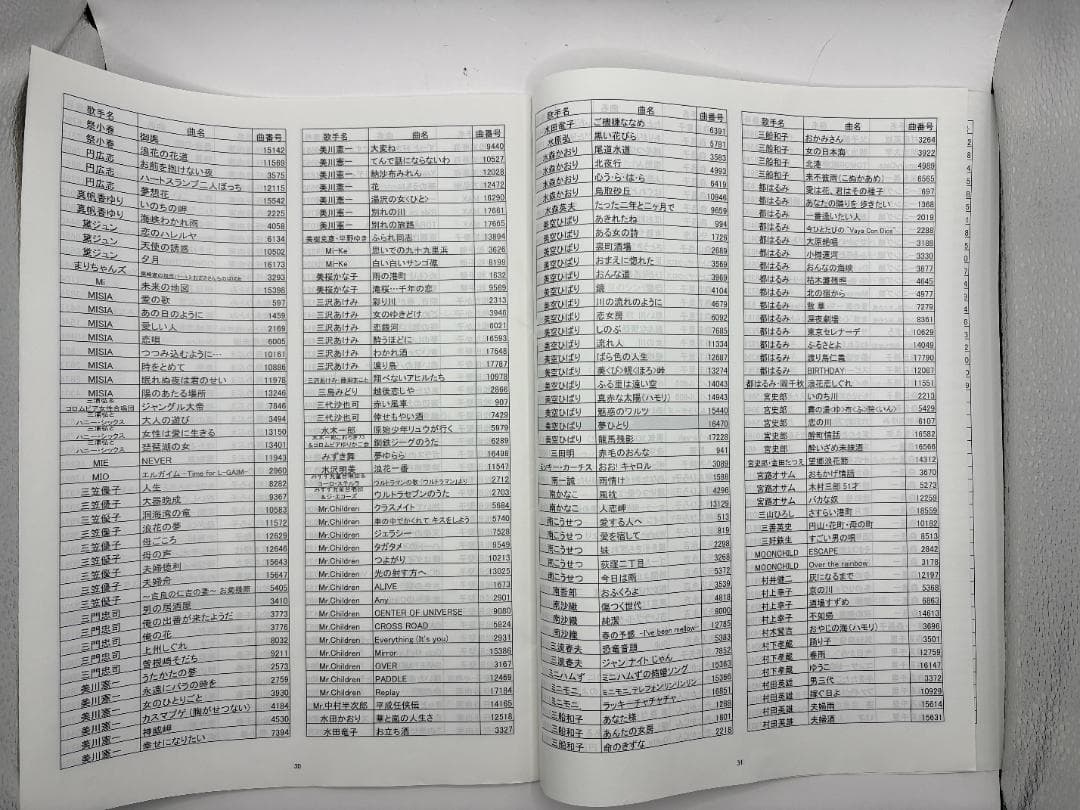 歌手名 曲名 曲番号
祭小春 御輿 15142
祭小春 浪花の花道 11569
円広志 お前を抱けない夜 3575
円広志 ハートスランプ二人ぼっち 12115
円広志 夢想花 15542
真帆香ゆり いのちの岬 2225
真帆香ゆり 海峡わかれ雨 4058
黛ジュン 恋のハレルヤ 6134
黛ジュン 天使の誘惑 10502
黛ジュン 夕月 16173
まりちゃんズ 3293
Mi 未来の地図 15398
MISIA 愛の歌 597
MISIA あの日のように 1459
MISIA 愛しい人 2169
MISIA 恋唄 6005
MISIA つつみ込むように… 10161
MISIA 時をとめて 10886
MISIA 眠れぬ夜は君のせい 11978
MISIA 陽のあたる場所 13246
コロムビア女性合唱団 ジャングル大帝 7846
三浦弘とハニー・シックス 大人の遊び 3494
三浦弘とハニー・シックス 女性は愛に生きる 13150
三浦弘とハニー・シックス 琵琶湖の女 13401
MIE NEVER 11943
MIO エルガイム -Time for L-GAIM- 2960
三笠優子 人生 8282
三笠優子 大器晩成 9367
三笠優子 洞海湾の竜 10583
三笠優子 浪花の夢 11572
三笠優子 母ごころ 12629
三笠優子 母の声 12646
三笠優子 夫婦徳利 15643
三笠優子 夫婦舟 15647
三笠優子 ～吉良の仁吉の妻～ お菊残照 5405
三門忠司 男の居酒屋 3410
三門忠司 俺の出番が来たようだ 3773
三門忠司 俺の花 3776
三門忠司 上州しぐれ 8032
三門忠司 曽根崎そだち 9211
美川憲一 うたかたの夢 2573
美川憲一 永遠にバラの時を 2759
美川憲一 女のひとりごと 3930
美川憲一 カスマプゲ (胸がせつない) 4184
美川憲一 神威岬 4530
美川憲一 幸せになりたい 7394
歌手名 曲名 曲番号
美川憲一 大変ね 9440
美川憲一 てんで話にならないわ 10527
美川憲一 納沙布みれん 12028
美川憲一 花 12472
美川憲一 湯沢の女<ひと> 16290
美川憲一 別れの川 17661
美川憲一 別れの旅路 17665
美樹克彦・中野ゆき ふられ同志 13894
Mi-Ke 思いでの九十九里浜 3626
Mi-Ke 白い白いサンゴ礁 8199
美桜かな子 雨の港町 1832
美桜かな子 滝桜…千年の恋 9569
三沢あけみ 彩り川 2313
三沢あけみ 女のゆきどけ 3946
三沢あけみ 恋銀河 6021
三沢あけみ 酔うほどに 16593
三沢あけみ わかれ酒 17648
三沢あけみ 渡り鳥 17767
翔べないアヒルたち 10978
三島みどり 越後恋しや 2866
三代沙也可 赤い風車 907
三代沙也可 倖せもやい酒 7429
水木一郎 原始少年リュウが行く 5979
鋼鉄ジーグのうた 6289
みずき舞 夢ゆらら 16498
水沢明美 浪花一番 11547
ウルトラマンの歌 2712
ウルトラセブンのうた 2703
Mr.Children クラスメイト 5684
Mr.Children 車の中でかくれて キスをしよう 5740
Mr.Children ジェラシー 7528
Mr.Children タガタメ 9549
Mr.Children つよがり 10213
Mr.Children 光の射す方へ 13025
Mr.Children ALIVE 1673
Mr.Children Any 2901
Mr.Children CENTER OF UNIVERSE 9080
Mr.Children CROSS ROAD 5824
Mr.Children Everything (It's you) 2931
Mr.Children Mirror 15386
Mr.Children OVER 3167
Mr.Children PADDLE 12469
Mr.Children Replay 17194
Mr.中村半次郎 平成任侠伝 14165
水田かおり 華と嵐の人生さ 12518
水田竜子 お立ち酒 3327
30
歌手名 曲名 曲番号
水田竜子 ご機嫌ななめ 6391
水原弘 黒い花びら 5781
水森かおり 尾道水道 3583
水森かおり 北夜行 4993
水森かおり 心・う・ら・は・ら 6419
水森かおり 鳥取砂丘 10946
水森英夫 たった二年と二ヶ月で 9659
美空ひばり あきれたね 994
美空ひばり ある女の詩 1726
美空ひばり 哀町酒場 2689
美空ひばり おまえに惚れた 3569
美空ひばり おんな道 3969
美空ひばり 鏡 4104
美空ひばり 川の流れのように 4679
美空ひばり 恋女房 6092
美空ひばり しのぶ 7685
美空ひばり 流れ人 11334
美空ひばり ばら色の人生 12687
美空ひばり 美<び>幌<ほろ>峠 13274
美空ひばり ふる里は遠い空 14043
美空ひばり 真赤な太陽(ハモリ) 14943
美空ひばり 魅惑のワルツ 15440
美空ひばり 夢ひとり 16470
美空ひばり 龍馬残影 17228
三田明 赤毛のおんな 941
ミッキー・カーチス おお! キャロル 3089
南一誠 雨情け 1586
南かなこ 風枕 4296
南かなこ 人恋岬 13129
南こうせつ 愛する人へ 513
南こうせつ 愛を宿して 819
南こうせつ 妹 2298
南こうせつ 荻窪二丁目 3268
南こうせつ 今日は雨 5372
南吾郎 おふくろよ 3539
南沙織 傷つく世代 4818
南沙織 純潔 8000
南沙織 春の予感 -I've been mellow- 12785
三波春夫 恐竜音頭 5383
三波春夫 ジャン ナイト じゃん 7852
ミニハムず ミニハムずの結婚ソング 15363
ミニモニ。 ミニモニ。テレフォンリンリンリン 15366
ミニモニ。 ラッキーチャチャチャ 16851
三船和子 あなた様 1288
三船和子 あんたの女房 1801
三船和子 命のきずな 2218
歌手名 曲名 曲番号
三船和子 おかみさん 3264
三船和子 女の日本海 3922
三船和子 北港 4989
三船和子 来不知雨(こぬかあめ) 6565
都はるみ 愛は花、君はその種子 697
都はるみ あなたの隣りを 歩きたい 1368
都はるみ 一番逢いたい人 2019
都はるみ 今ひとたびの "Vaya Con Dios" 2288
都はるみ 大原絶唱 3188
都はるみ 小樽運河 3330
都はるみ おんなの海峡 3877
都はるみ 枯木灘残照 4645
都はるみ 北の宿から 4977
都はるみ 散華 7279
都はるみ 深夜劇場 8361
都はるみ 東京セレナーデ 10629
都はるみ ふるさとよ 14049
都はるみ 渡り鳥仁義 17790
都はるみ BIRTHDAY 12087
都はるみ・岡千秋 浪花恋しぐれ 11551
宮史郎 いのち川 2213
宮史郎 5429
宮史郎 恋の川 6107
宮史郎 酔町情話 16582
宮史郎 酔いざめ未練酒 16566
宮史郎・金田たつえ 望郷浪花節 14312
宮路オサム おもかげ情話 3670
宮路オサム 木村三郎 51才 5273
宮路オサム バカな奴 12259
三山ひろし さすらい港町 18559
三善英史 円山・花町・母の町 10182
三好鉄生 すごい男の唄 8513
MOONCHILD ESCAPE 2842
MOONCHILD Over the rainbow 3178
村井健二 灰になるまで 12197
村上幸子 京の川 5368
村上幸子 酒場すずめ 6863
村上幸子 不如帰 14613
村木賢吉 おやじの海(ハモリ) 3696
村下孝蔵 踊り子 3501
村下孝蔵 春雨 12759
村下孝蔵 ゆうこ 16147
村田英雄 男三代 3372
村田英雄 稼ぐ日よ 10929
村田英雄 夫婦雨 15614
村田英雄 夫婦酒 15631
31